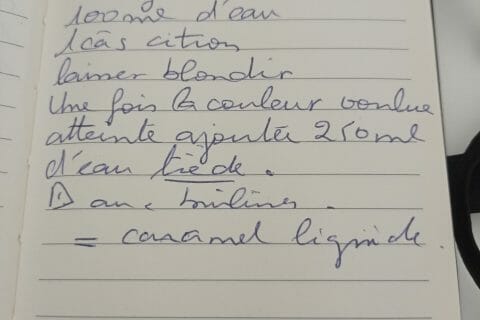 100ml d'eau
1 càs citron
laisser blondir
Une fois la couleur voulue
atteinte ajoutée 250ml
d'eau tiède.
= caramel liquide.